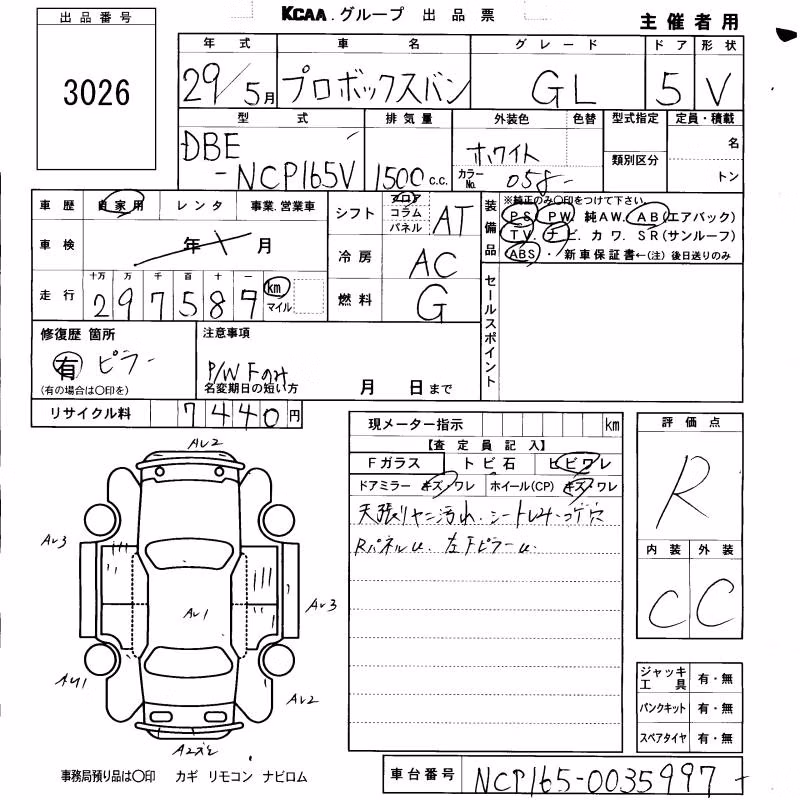 KCAA.グループ 出品票
主催者用
出品番号
3026
年式 車名 グレード ドア 形状
29/5月 プロボックスバン GL 5 V
型式 排気量 外装色 色替 型式指定 定員・積載
DBE
-NCP165V 1500 c.c. ホワイト カラーNo. 058- 類別区分 名
トン
車歴 自家用 レンタ 事業.営業車
車検 年 月
走行 十万 万 千 百 十 一
297587 km マイル
シフト フロア コラム パネル AT
冷房 AC
燃料 G
装備品 ※純正のみ○印をつけて下さい。
PS. PW 純AW. AB(エアバック)
TV. ナビ. カワ. SR(サンルーフ)
ABS・新車保証書←(注)後日送りのみ
セールスポイント
修復歴 箇所
有 ピラー
(有の場合は○印を)
注意事項
P/W Fのみ
名変期日の短い方 月 日まで
リサイクル料 7440円
現メーター指示 km
【査定員記入】
Fガラス トビ石 ヒビワレ
ドアミラー キズ・ワレ ホイール(CP) キズ・ワレ
天張りヤニ汚れ.シート
Rパネルu. 左Fピラーu.
評価点
R
内装 外装
C C
AU2
AU3
AU1
AU3
AU1
AU2
ジャッキ工具 有・無
パンクキット 有・無
スペアタイヤ 有・無
事務局預り品は○印 カギ リモコン ナビロム
車台番号 NCP165-0035997